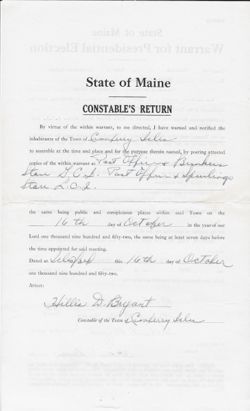 State of Maine
CONSTABLE'S RETURN
By virtue of the within warrant, to me directed, I have warned and notified the
inhabitants of the Town of Cranberry Isles
to assemble at the time and place and for the purpose therein named, by posting attested
copies of the within warrant at Post Office & Bunkers
Store G.C.I. Post Office & Spurlings
Store L.C.I.
the same being public and conspicuous places within said Town on the
16 th day of October in the year of our
Lord one thousand nine hundred and fifty-two, the same being at least seven days before
the time appointed for said meeting.
Dated at this 16th day of October
one thousand nine hundred and fifty-two.
Attest:
Hollis D. Bryant
Constable of the Town of Cranberry Isles